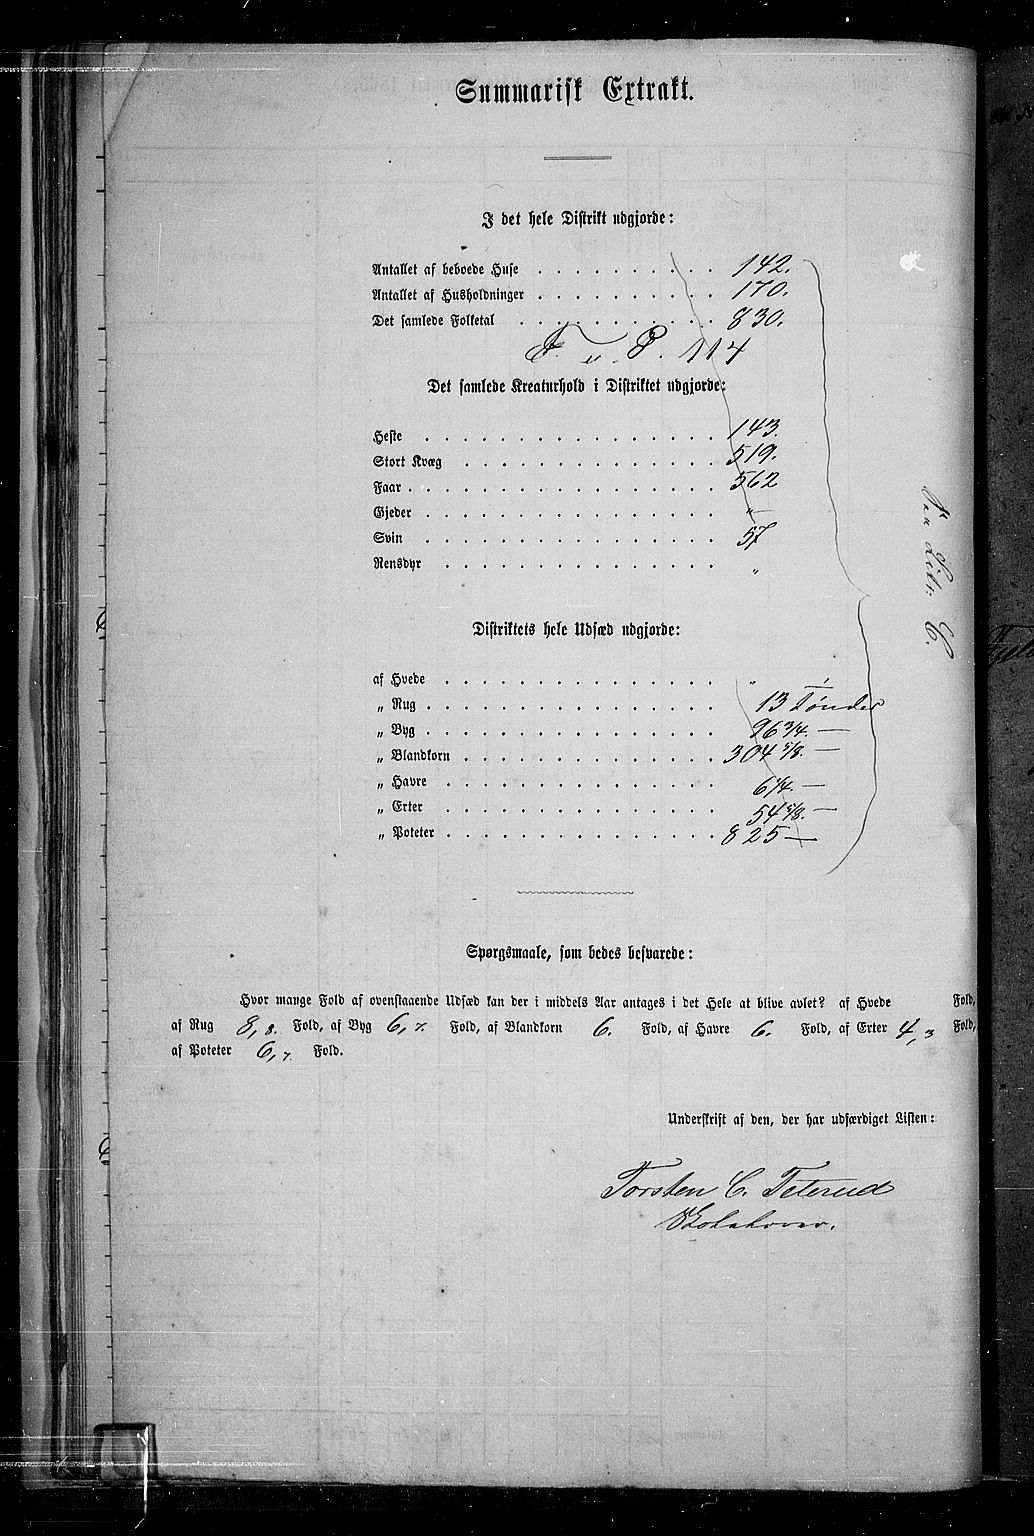 Summarisk Extrakt.
I det hele Distrikt udgjorde:
Antallet af beboede Huse . . . . . . . . . . 142.
Antallet af Husholdninger . . . . . . . . . . 170.
Det samlede Folketal . . . . . . . . . . 830.
F. u. P. 114
Det samlede Kreaturhold i Distriktet udgjorde:
Heste . . . . . . . . . . 143.
Stort Kvæg . . . . . . . . . . 519.
Faar . . . . . . . . . . 562
Gjeder . . . . . . . . . . "
Svin . . . . . . . . . . 57
Rensdyr . . . . . . . . . . "
Distriktets hele Udsæd udgjorde:
af Hvede . . . . . . . . . . "
„ Rug . . . . . . . . . . 13 Tønder
„ Byg . . . . . . . . . . 96 3/4. —
„ Blandkorn . . . . . . . . . . 304 5/8. —
„ Havre . . . . . . . . . . 6 1/4. —
„ Erter . . . . . . . . . . 54 5/8. —
„ Poteter . . . . . . . . . . 825 —
Spørgsmaale, som bedes besvarede:
Hvor mange Fold af ovenstaaende Udsæd kan der i middels Aar antages i det Hele at blive avlet? af Hvede Fold,
af Rug 8,8. Fold, af Byg 6,7. Fold, af Blandkorn 6. Fold, af Havre 6. Fold, af Erter 4,3 Fold,
af Poteter 6,7. Fold.
Underskrift af den, der har udfærdiget Listen:
Torsten C. Teterud
Litr. C.